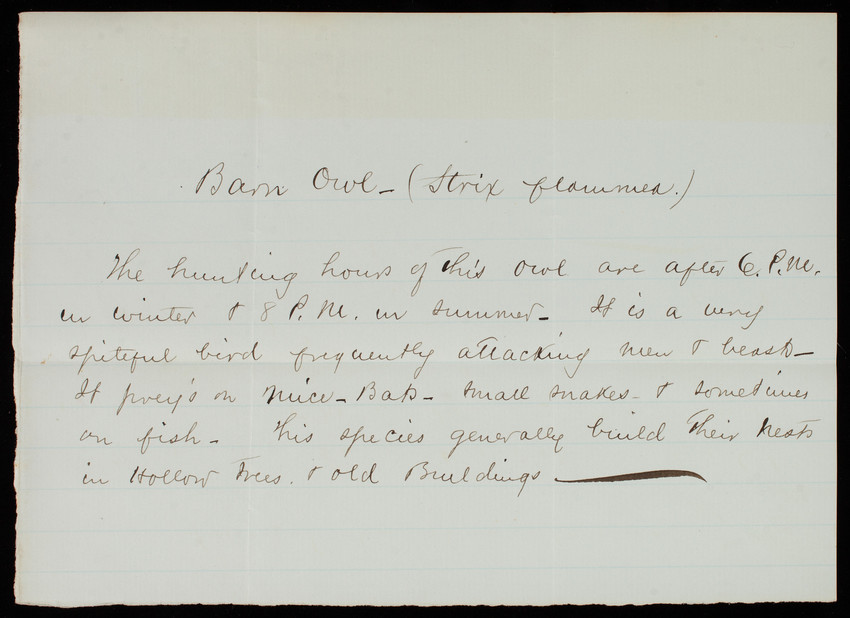 Barn Owl - (Strix flammea.)
The hunting hours of this owl are after 6. P.M.
in winter & 8 P.M. in summer - It is a very
spiteful bird frequently attacking men & beasts -
It prey's on mice - Bats - small snakes - & sometimes
on fish - This species generally build their nests
in Hollow Trees. & old Buildings